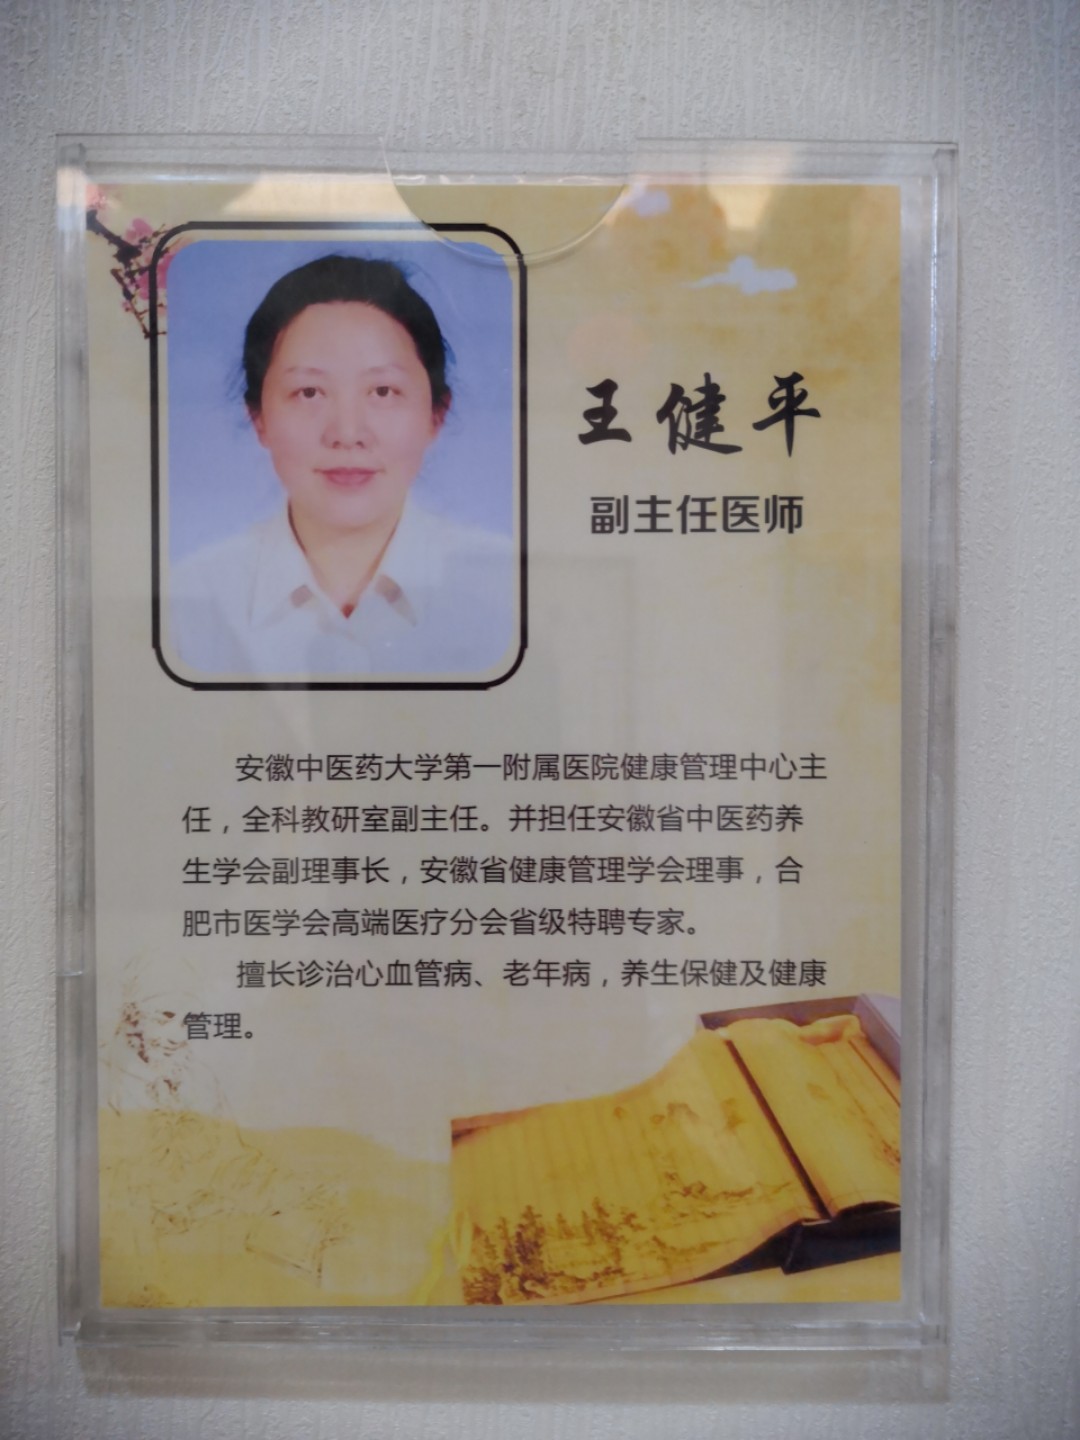 王健平
副主任医师
安徽中医药大学第一附属医院健康管理中心主
任，全科教研室副主任。并担任安徽省中医药养
生学会副理事长，安徽省健康管理学会理事，合
肥市医学会高端医疗分会省级特聘专家。
擅长诊治心血管病、老年病，养生保健及健康
管理。